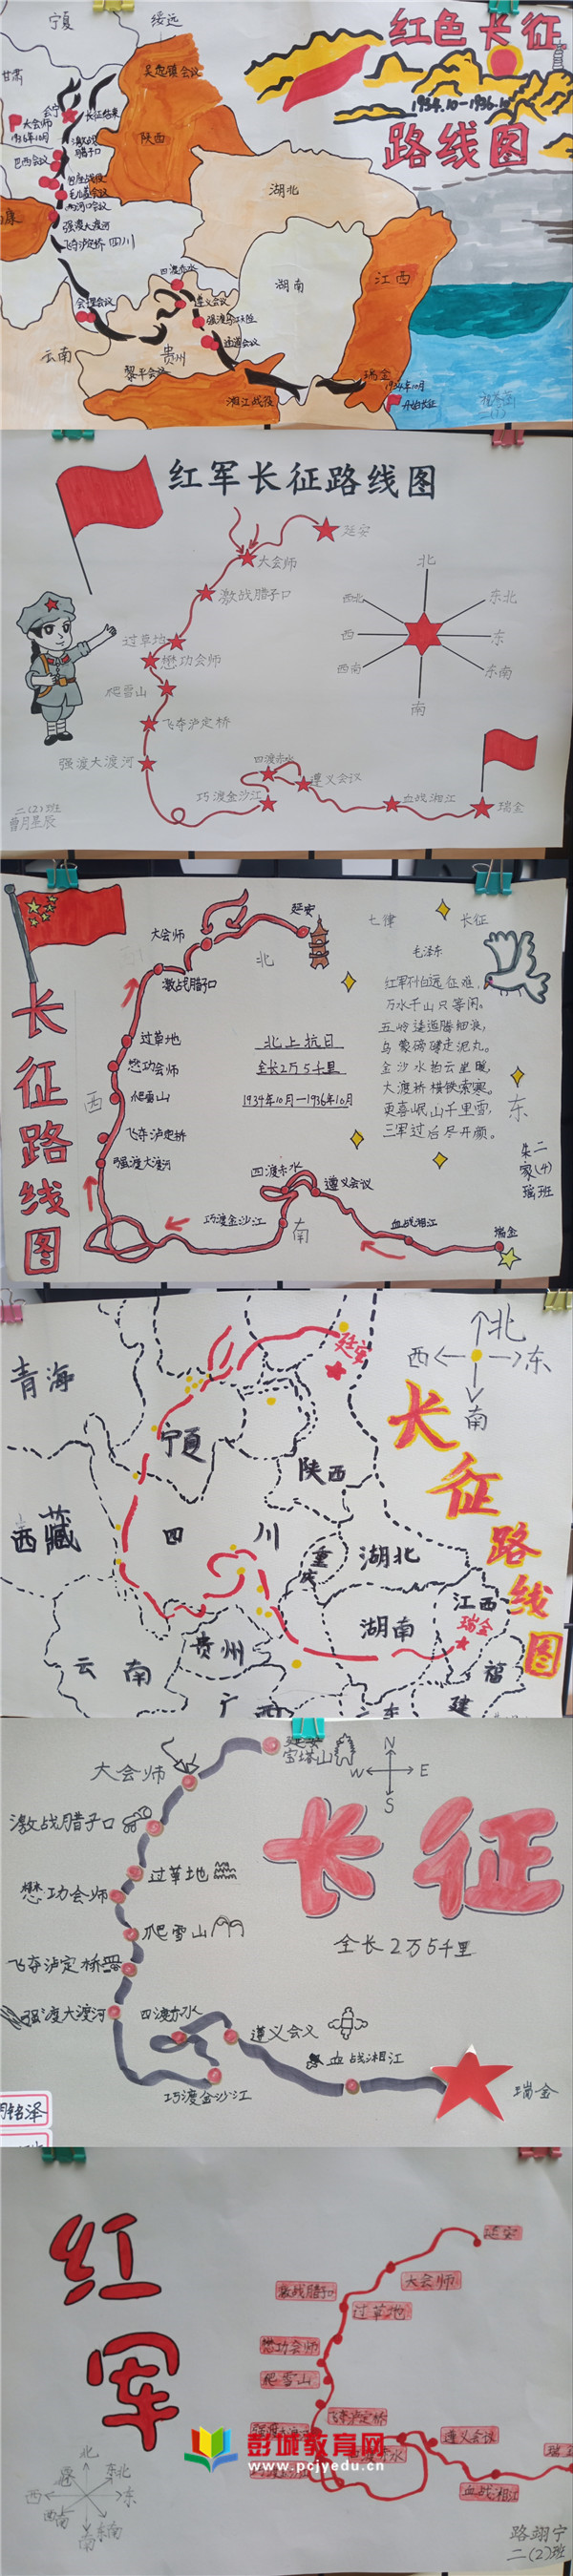 宁夏
绥远
红色长征
甘肃
吴起镇会议
1934.10-1936.10
路线图
会宁
长征结束
大会师
1936年10月
激战
腊子口
陕西
巴西会议
包座战役
毛儿盖会议
两河口会议
强渡大渡河
飞夺泸定桥
四川
康
湖北
江西
湖南
四渡赤水
会理会议
遵义会议
强渡乌江天险
通道会议
云南
贵州
黎平会议
湘江战役
瑞金
1934年10月
开始长征
红军长征路线图
延安
大会师
激战腊子口
过草地
懋功会师
爬雪山
飞夺泸定桥
强渡大渡河
四渡赤水
遵义会议
巧渡金沙江
血战湘江
瑞金
北
西北
东北
西
东
西南
东南
南
二(2)班
曹月星辰
长征路线图
延安
大会师
激战腊子口
北
过草地
懋功会师
西
爬雪山
飞夺泸定桥
强渡大渡河
北上抗日
全长2万5千里
1934年10月—1936年10月
四渡赤水
遵义会议
巧渡金沙江
南
血战湘江
瑞金
七律 长征
毛泽东
红军不怕远征难,
万水千山只等闲。
五岭逶迤腾细浪,
乌蒙磅礴走泥丸。
金沙水拍云崖暖,
大渡桥横铁索寒。
更喜岷山千里雪,
三军过后尽开颜。
东
二(4)班
朱家瑶
青海
延安
北
西
东
南
长征路线图
宁夏
陕西
西藏
四川
重庆
湖北
江西
瑞金
湖南
贵州
云南
广西
福建
广东
延安
宝塔山
N
W
E
S
大会师
激战腊子口
长征
过草地
懋功会师
爬雪山
全长2万5千里
飞夺泸定桥
强渡大渡河
四渡赤水
遵义会义
血战湘江
巧渡金沙江
瑞金
铭泽
红军
延安
大会师
激战腊子口
过草地
懋功会师
爬雪山
飞夺泸定桥
遵义会议
血战湘江
北
东北
西
东
西南
南
东南
彭城教育网
www.pcjyedu.cn
路翊宁
二(2)班